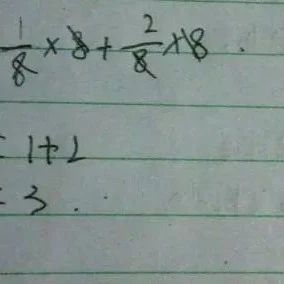 1/8 × 8 + 2/8 × 8
= 1+2
= 3